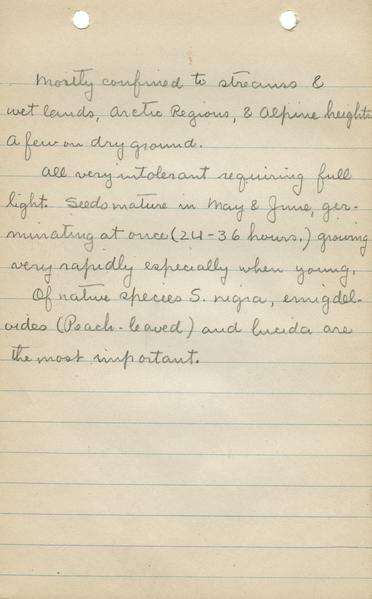 Mostly confined to streams &
wet lands, Arctic Regions, & Alpine heights
A few on dry ground.
All very intolerant requiring full
light. Seeds mature in May & June, ger-
minating at once (24-36 hours.) growing
very rapidly especially when young.
Of native species S. nigra, emigdel-
oides (Peach-leaved) and lucida are
the most important.